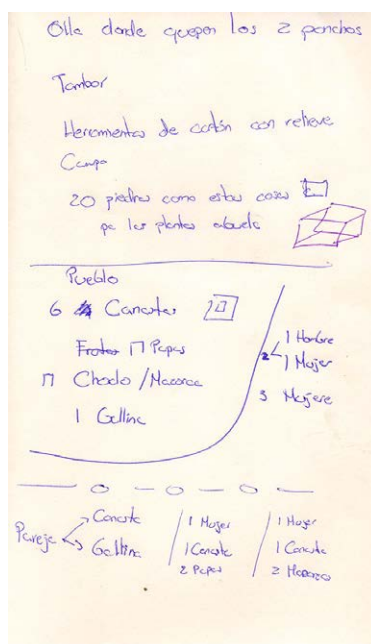 Olla donde quepan los 2 ponchos
Tambor
Herramientas de cartón con relieve
Campo
20 piedras como estas cosas
pa las plantas abuelo
Pueblo
6 Canastas
Frutas Papas
Choclo / Mazorca
1 Gallina
1 Hombre
2
1 Mujer
3 Mujere
Pareja
Canasta
Gallina
1 Mujer
1 Canasta
2 Papas
1 Mujer
1 Canasta
2 Mazorca